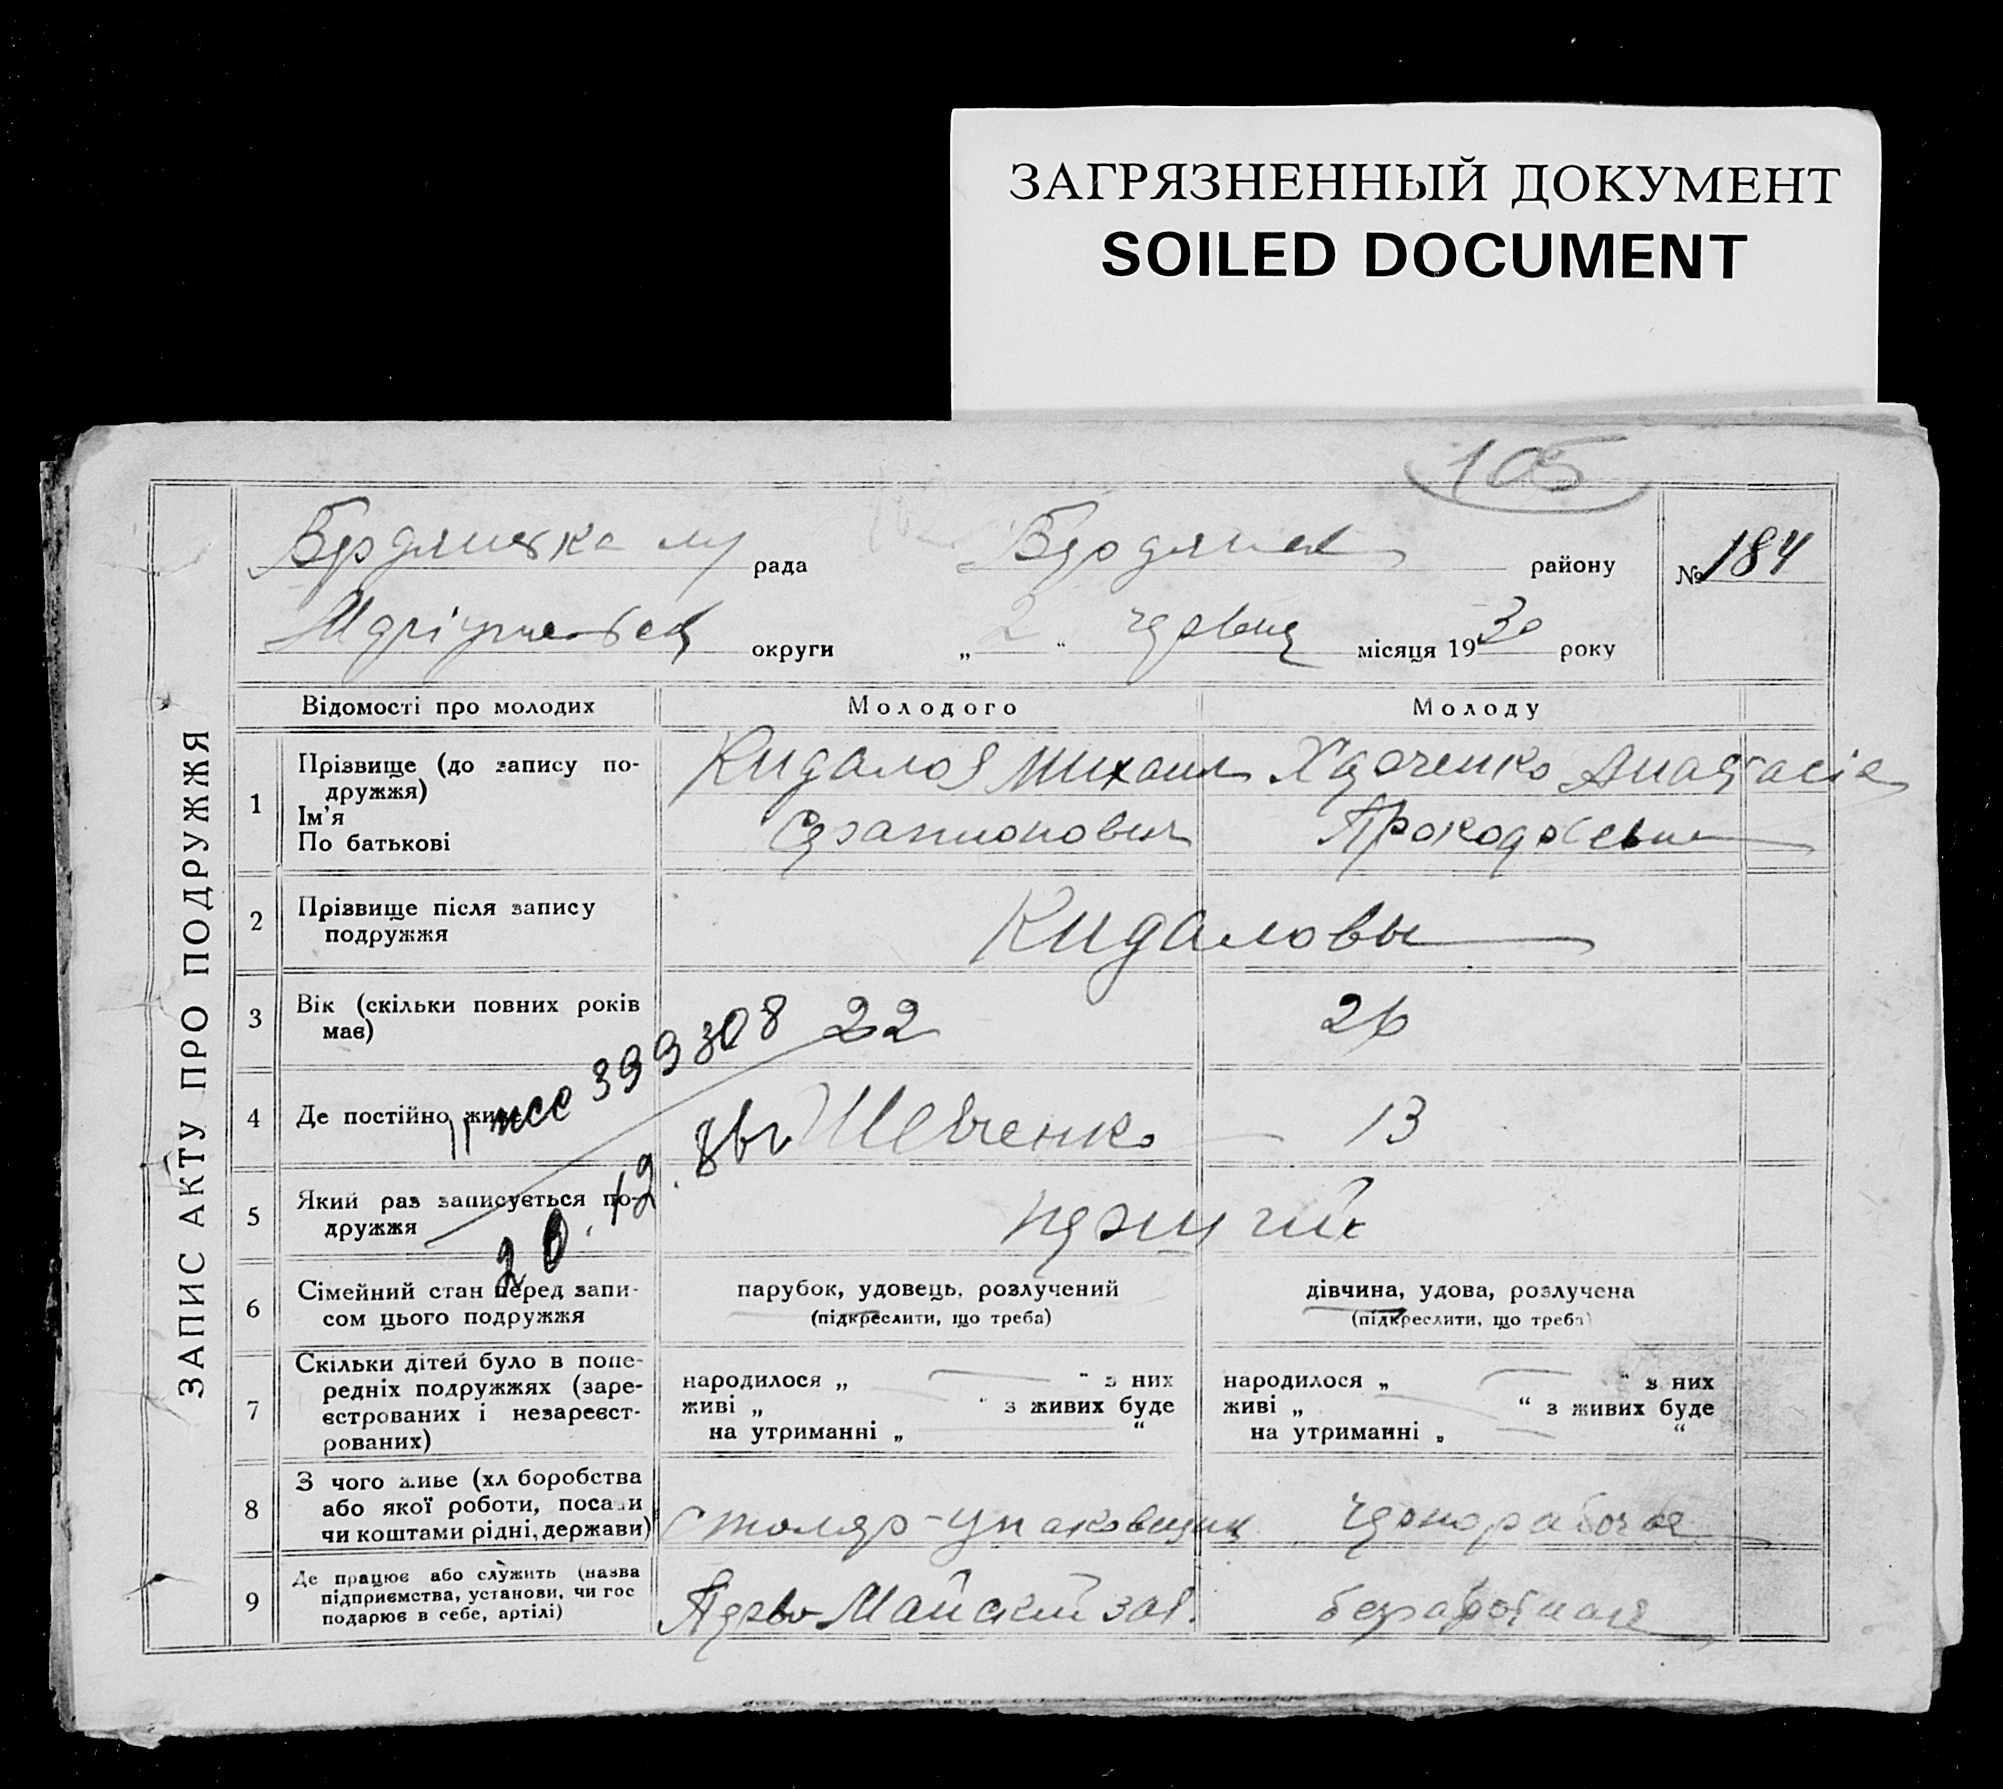 ЗАГРЯЗНЕННЫЙ ДОКУМЕНТ
SOILED DOCUMENT
105
ЗАПИС АКТУ ПРО ПОДРУЖЖЯ
Бердянська рада Бердянськ району № 184
Маріупольськ округи „ 2 “ червня місяця 1930 року
Відомості про молодих Молодого Молоду
1 Прізвище (до запису подружжя) Кидалов Михаил Анастасія
Ім'я
По батькові
2 Прізвище після запису подружжя Кидаловы
3 Вік (скільки повних років має) 22 26
4 Де постійно Шевченко 13
399308
20.12.86г
5 Який раз записується подружжя
6 Сімейний стан перед записом цього подружжя парубок, удовець, розлучений дівчина, удова, розлучена
(підкреслити, що треба) (підкреслити, що треба)
7 Скільки дітей було в попередніх подружжях (зареєстрованих і незареєстрованих)
народилося „ “ з них народилося „ “ з них
живі „ “ з живих буде живі „ “ з живих буде
на утриманні „ “ на утриманні „ “
8 З чого живе (хліборобства або якої роботи, посади чи коштами рідні, держави) столяр-упаковщик
9 Де працює або служить (назва підприємства, установи, чи господарює в себе, артілі) Перво-Майский зав. безработная